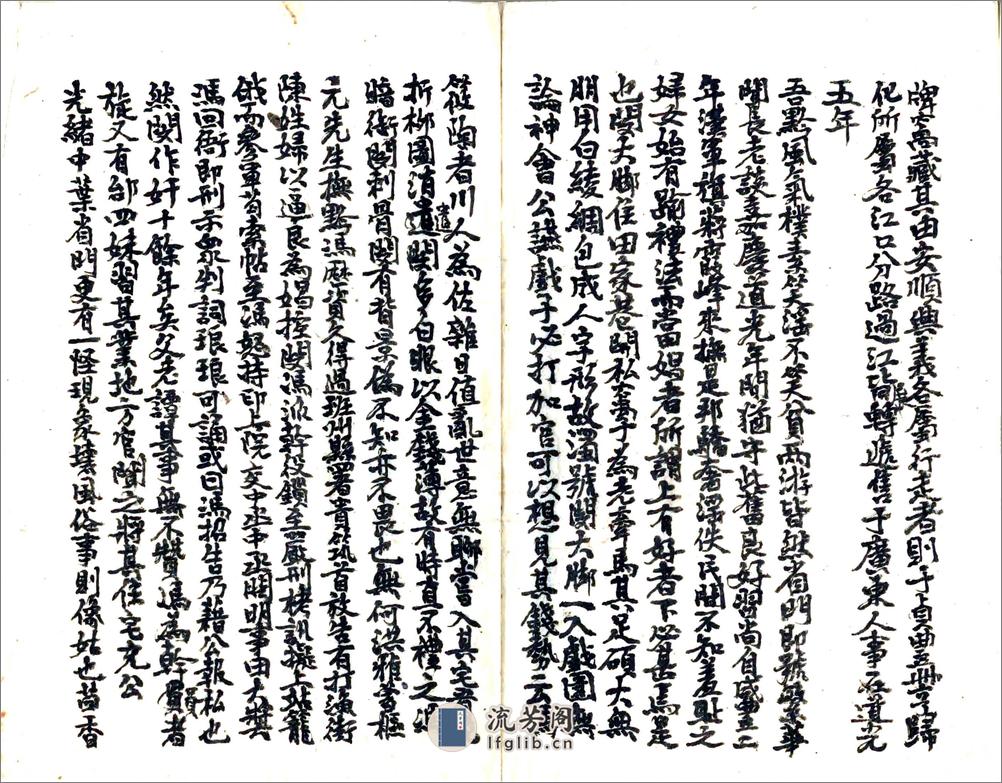 牌寓藏其由安順興義各屬行走者則于自由五冊亨歸
化所屬各江口分路過江皆轉遞售于廣東人事在道光
五年
吾黔風氣樸素笑淫不笑貧兩游皆然省門即號繁華
聞長老談嘉慶道光年間猶守此舊良好習尚自咸豐
年漢軍旗蔣霨峰來撫是邦驕奢淫佚民間不知羞恥之
婦女始有踰禮法而當田娼者所謂上有好者下必甚焉是
也閔大腳住田家巷開私窩子為老牽馬其足碩大無
朋用白綾綢包成人字形故渾號閔大腳一入戲園無
論神會公讌戲子必打加官可以想見其錢勢
篠陶者川人為佐雜目值亂世意無聊嘗入其宅
折柳圖消遣閔多白眼以金錢薄故有時直不禮之
臨街閔刺骨閔有背景偽不知亦不畏也無何洪雅曾樞
元先生撫黔馮歷資久得過班州縣署貴筑首放告有打漁街
陳姓婦以逼良為娼控閔馮派幹役鎖至嚴刑栲訊擬上站籠
俄而參軍首索帖至馮怒持印上院交中丞中丞閔明事由大獎
馮回衙即刑示眾判詞琅琅可誦或曰馮招告乃藉公報私也
然閔作奸十餘年矣父老譚其事無不贊馮為幹員者
旋又有邰四妹習其業地方官聞之將其住宅充公
光緒中葉省門更有一怪現象壞風俗事則像姑也茴香
流芳阁
lfglib.cn